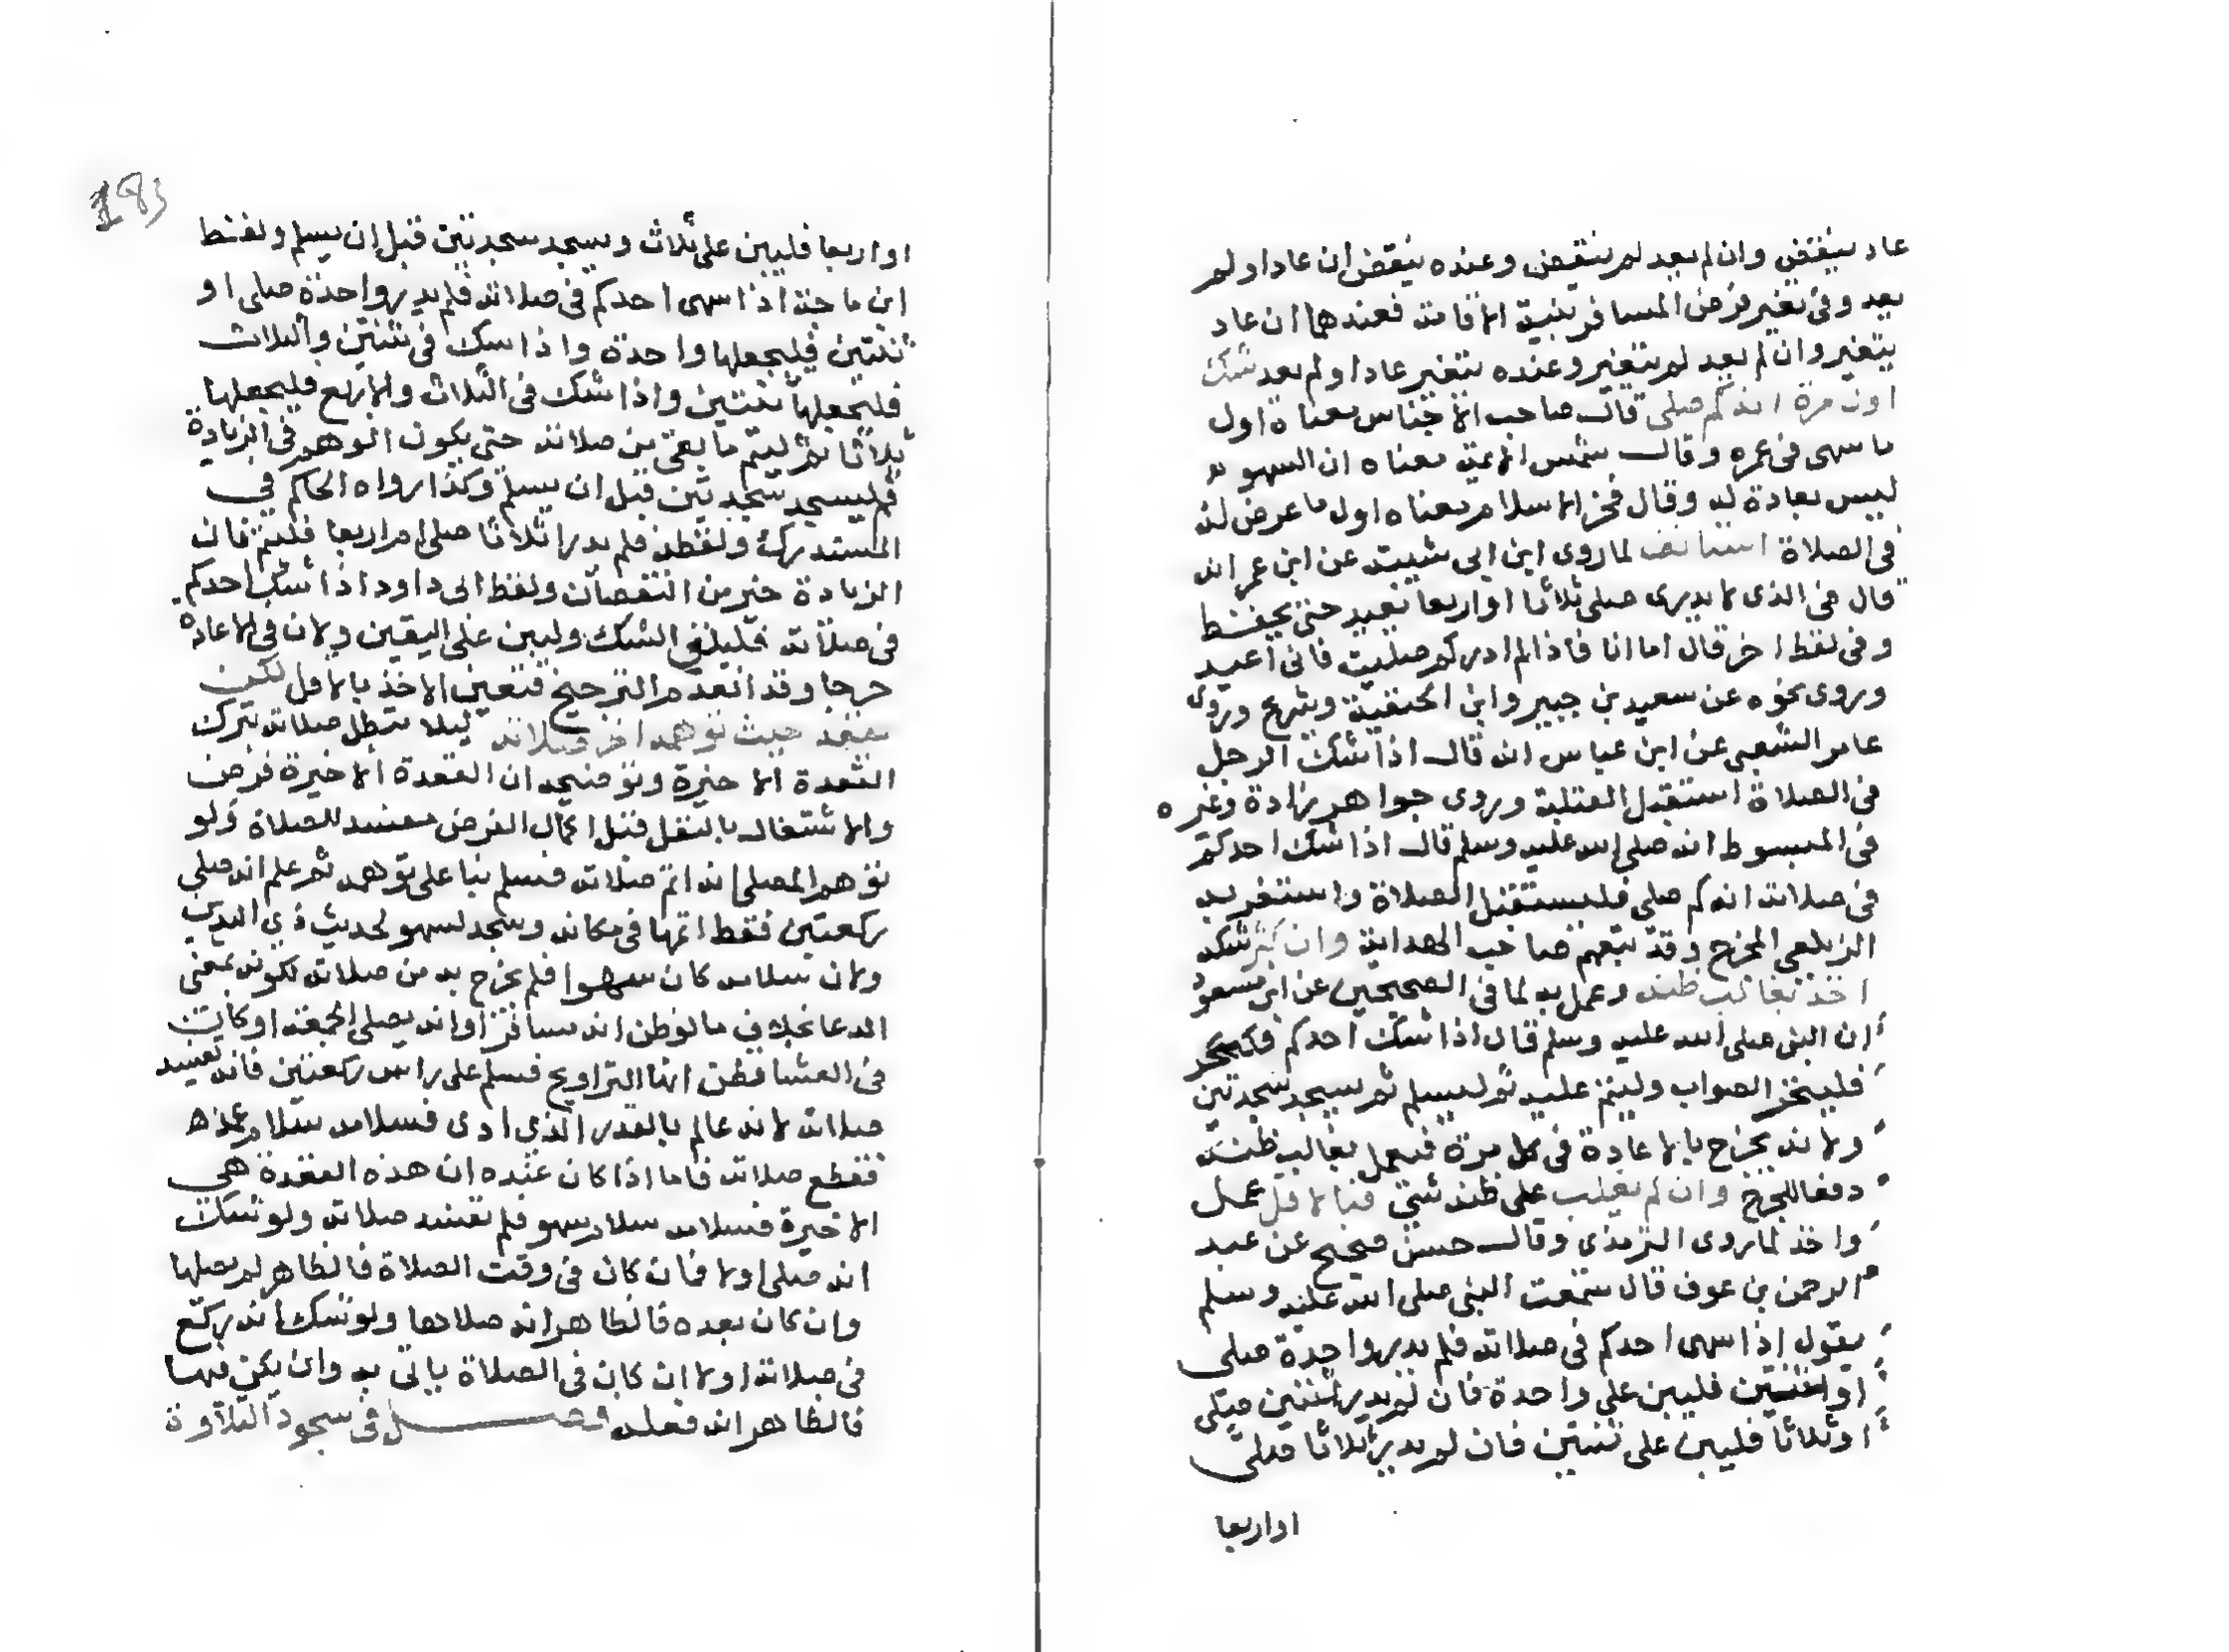 عاد ينتقض وان لم يعد لم ينتقض وعنده ينتقض ان عاد او لم
يعد وفي تغير فرض المسافر بنية الاقامة فعندهما ان عاد
يتغير وان لم يعد لم يتغير وعنده يتغير عاد او لم يعد شك
اول مرة انه كم صلى قال صاحب الاجناس معناه اول
ما سهى في عمره وقال شمس الائمة معناه ان السهو
ليس بعادة له وقال فخر الاسلام معناه اول ما عرض له
في الصلاة استانف لما روى ابن ابي شيبة عن ابن عمر انه
قال في الذي لا يدري صلى ثلاثا او اربعا يعيد حتى يحفظ
وفي لفظ اخر قال اما انا فاذا لم ادر كم صليت فاني اعيد
وروى نحوه عن سعيد بن جبير وابن الحنفية وشريح وروى
عامر الشعبي عن ابن عباس انه قال اذا شك الرجل
في الصلاة استقبل القبلة وروى خواهر زادة وغيره
في المبسوط انه صلى الله عليه وسلم قال اذا شك احدكم
في صلاته انه كم صلى فليستقبل الصلاة واستغربه
الزيلعي المخرج وقد تبعهم صاحب الهداية وان كثر شكه
اخذ بغالب ظنه وعمل به لما في الصحيحين عن ابن مسعود
ان النبي صلى الله عليه وسلم قال اذا شك احدكم
فليتحر الصواب وليتم عليه ثم ليسلم ثم يسجد سجدتين
ولانه يحرج بالاعادة في كل مرة فيعمل بغالب ظنه
دفعا للحرج وان لم يغلب على ظنه شئ فبالاقل عمل
واخذ لما روى الترمذي وقال حسن صحيح عن عبد
الرحمن بن عوف قال سمعت النبي صلى الله عليه وسلم
يقول اذا سهى احدكم في صلاته فلم يدر واحدة صلى
او اثنتين فليبن على واحدة فان لم يدر ثنتين صلى
او ثلاثا فليبن على ثنتين فان لم يدر ثلاثا صلى
او اربعا
183
او اربعا فليبن على ثلاث ويسجد سجدتين قبل ان يسلم ولفظ
ابن ماجة اذا سهى احدكم في صلاته فلم يدر واحدة صلى او
ثنتين فليجعلها واحدة واذا شك في ثنتين والثلاث
فليجعلها ثنتين واذا شك في الثلاث والاربع فليجعلها
ثلاثا ثم ليتم ما بقى من صلاته حتى يكون الوهم في الزيادة
فليسجد سجدتين قبل ان يسلم وكذا رواه الحاكم في
المستدرك ولفظه فلم يدر اثلاثا صلى ام اربعا فليتم فان
الزيادة خير من النقصان ولفظ ابي داود اذا شك احدكم
في صلاته فليلغي الشك وليبن على اليقين ولان في الاعادة
حرجا وقد انعدم الترجيح فتعين الاخذ بالاقل لكن
يقعد حيث توهمه اخر صلاته ليلا تبطل صلاته بترك
القعدة الاخيرة وتوضيحه ان القعدة الاخيرة فرض
والاشتغال بالنفل قبل اكمال الفرض مفسد للصلاة ولو
توهم المصلي انه اتم صلاته فسلم بنا على توهمه ثم علم انه صلى
ركعتين فقط اتمها في مكانه وسجد لسهو لحديث ذي اليدين
ولان سلامه كان سهوا فلم يخرج به من صلاته لكونه بمعنى
الدعا بخلاف ما لو ظن انه مسافر او انه يصلي الجمعة او كان
في العشا فظن انها التراويح فسلم على راس ركعتين فانه تفسد
صلاته لانه عالم بالقدر الذي ادى فسلامه سلام عمد
فقطع صلاته فاما اذا كان عنده ان هذه القعدة هي
الاخيرة فسلامه سلام سهو فلم تفسد صلاته ولو شك
انه صلى اولا فان كان في وقت الصلاة فالظاهر لم يصلها
وان كان بعده فالظاهر انه صلاها ولو شك انه ركع
في صلاته اولا ان كان في الصلاة ياتي به وان يكن فيها
فالظاهر انه فعله فصل في سجود التلاوة